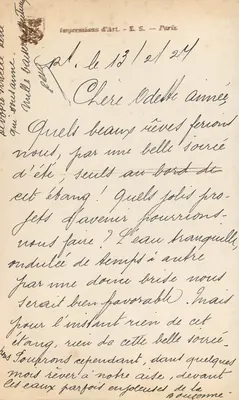 Impressions d'Art. - E. S. - Paris
pt. le 13/2/27
Chère Odette aimée,
Quels beaux rêves ferions
nous, par une belle soirée
d'été, seuls au bord de
cet étang! Quels jolis pro-
jets d'avenir pourrions-
nous faire? L'eau tranquille,
ondulée de temps à autre
par une douce brise nous
serait bien favorable. Mais
pour l'instant rien de cet
étang, rien de cette belle soirée
Espérons cependant, dans quelques
mois rêver à notre aise, devant
ces eaux parfois enjoleuses de la
qui
Mille baisers